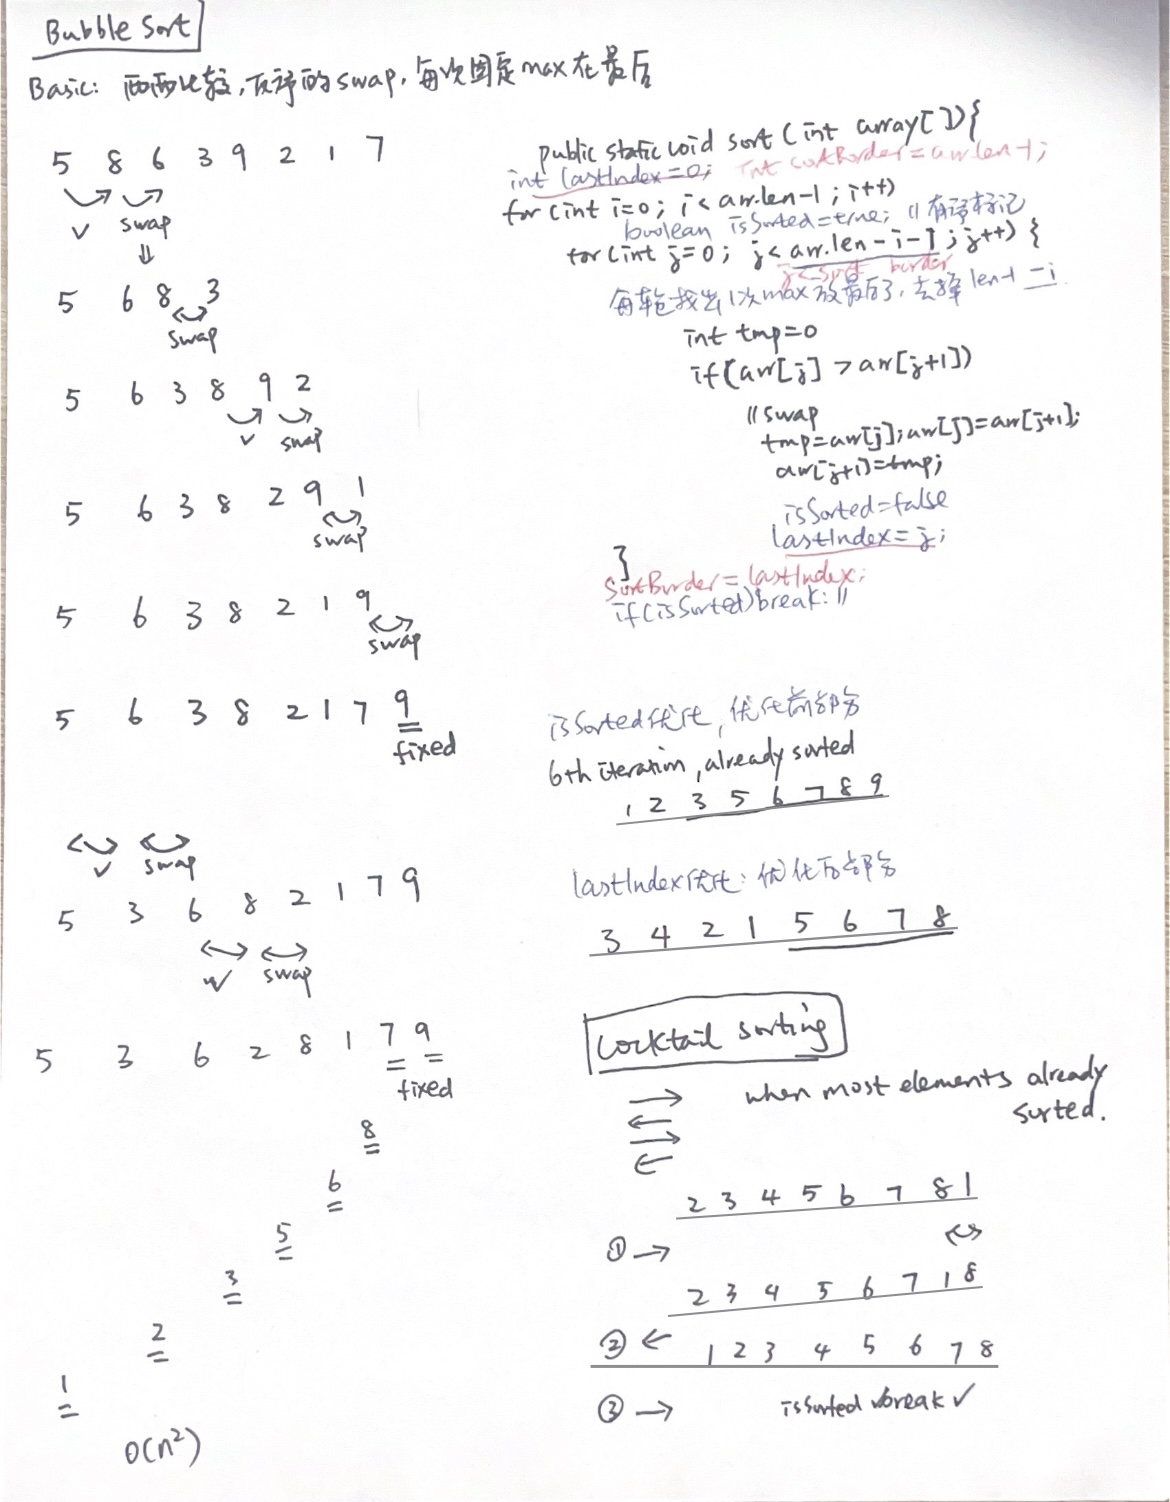 Bubble Sort
Basic: 两两比较,反序的swap,每次固定max在最后
5 8 6 3 9 2 1 7
✓ swap
⇓
5 6 8 3
swap
5 6 3 8 9 2
✓ swap
5 6 3 8 2 9 1
swap
5 6 3 8 2 1 9
swap
5 6 3 8 2 1 7 9
fixed
✓ swap
5 3 6 8 2 1 7 9
✓ swap
5 3 6 2 8 1 7 9
fixed
8
6
5
3
2
1
O(n²)
public static void sort (int array[]){
int lastIndex=0; int sortBorder=arr.len-1;
for (int i=0; i<arr.len-1; i++)
boolean isSorted=true; //有序标记
for (int j=0; j<arr.len-i-1; j++) {
j<sort border
每轮找出1次max放最后了,去掉len-1-i
int tmp=0
if(arr[j] >arr[j+1])
//swap
tmp=arr[j];arr[j]=arr[j+1];
arr[j+1]=tmp;
isSorted=false
lastIndex=j;
}
SortBorder=lastIndex;
if(isSorted)break: //
isSorted优化,优化前部分
6th iteration, already sorted
1 2 3 5 6 7 8 9
lastIndex优化: 优化后部分
3 4 2 1 5 6 7 8
Cocktail sorting
→ when most elements already
← sorted.
→
←
2 3 4 5 6 7 8 1
① →
2 3 4 5 6 7 1 8
② ← 1 2 3 4 5 6 7 8
③ → isSorted break ✓